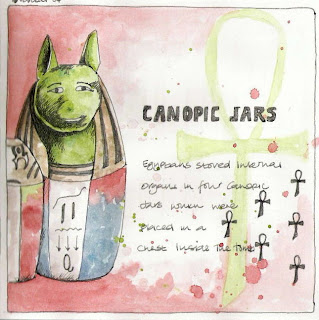 CANOPIC JARS
Egyptians stored internal
organs in four canopic
jars which were
placed in a
chest inside the tomb